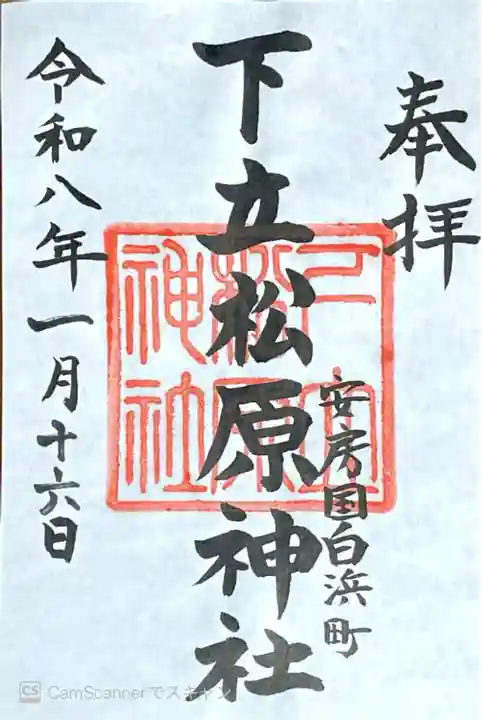 奉拝
安房国白浜町
下立松原神社
令和八年一月十六日
下立
松原
神社
CS CamScannerでスキャン